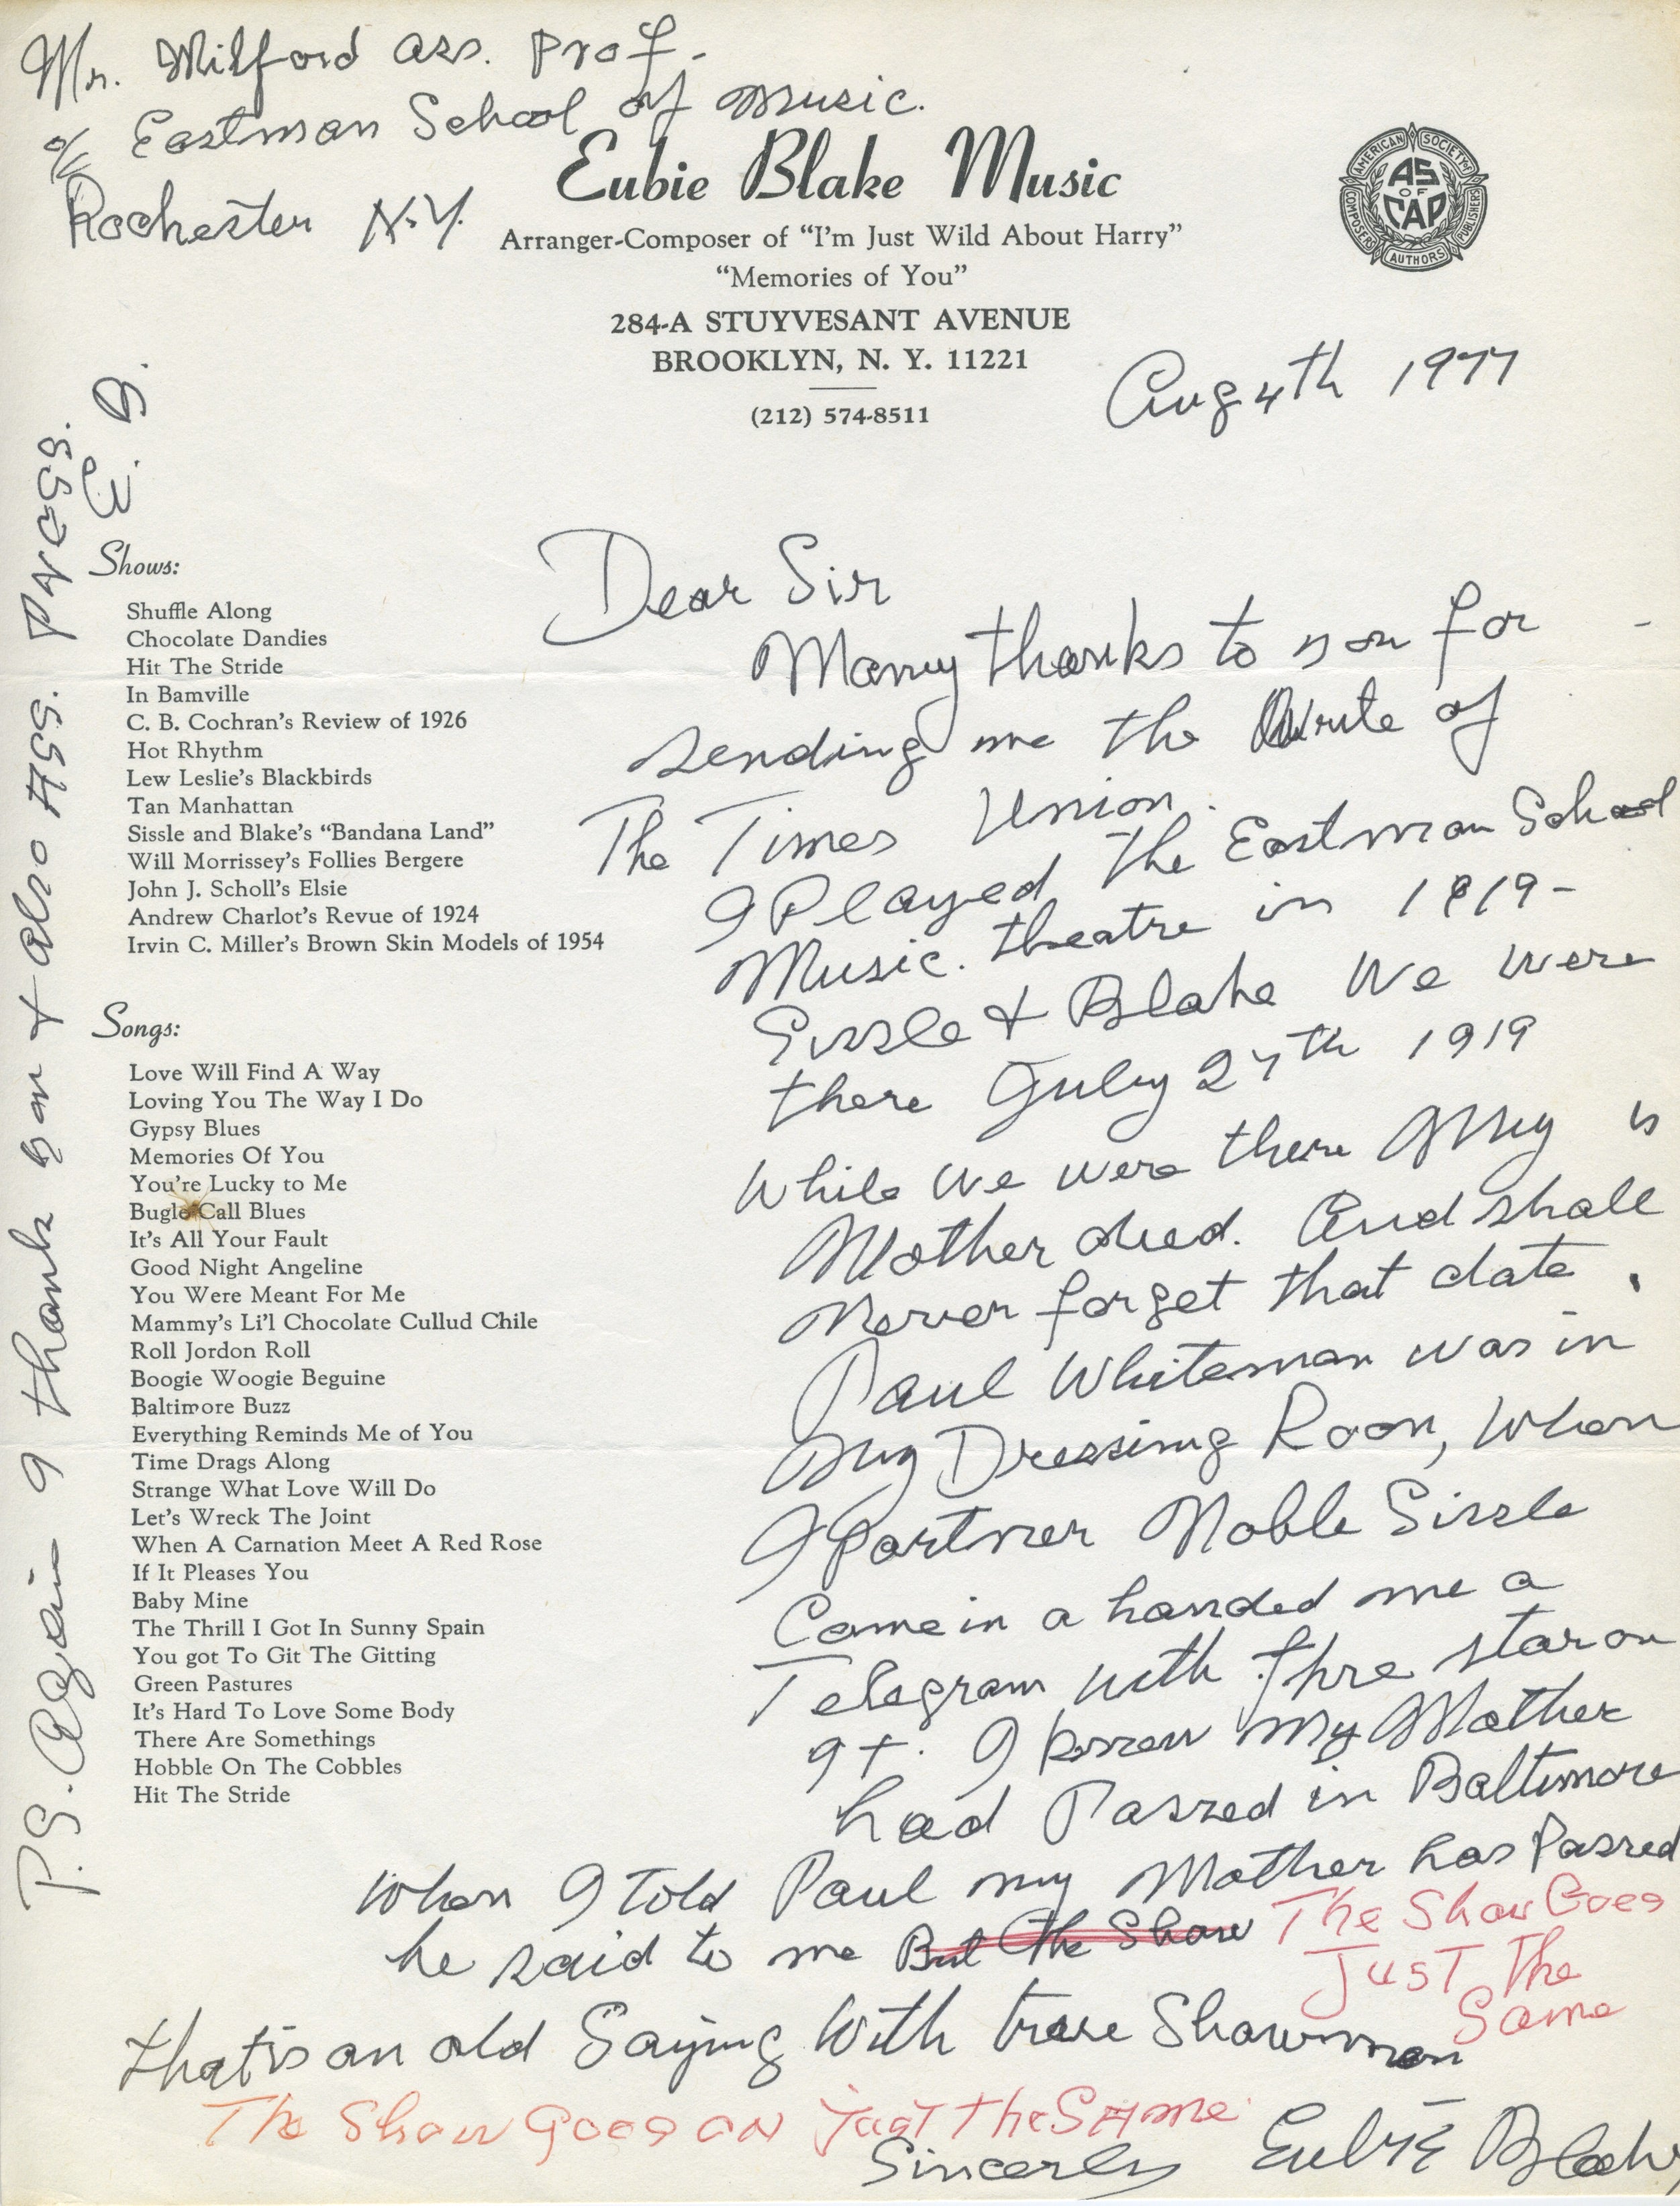 Mr. Milford ass. Prof.
of Eastman School of Music.
Rochester N.Y.
Eubie Blake Music
Arranger-Composer of “I’m Just Wild About Harry”
“Memories of You”
284-A STUYVESANT AVENUE
BROOKLYN, N. Y. 11221
(212) 574-8511
AMERICAN SOCIETY of COMPOSERS AUTHORS PUBLISHERS
AS
OF
CAP
Aug 4th 1977
Dear Sir
Many thanks to you for
sending me the Write of
The Times Union.
I Played, the Eastman School
Music. theatre in 1919-
Sissle & Blake We were
there July 27th 1919
While We were there My
Mother died. And shall
never forget that date.
Paul Whiteman was in
my Dressing Room, When
Partner Noble Sissle
Come in a handed me a
Telegram with thre star on
it. I know my Mother
had Passed in Baltimore
When I told Paul my Mother has Passed
he said to me But the Show The Show Goes
Just The
Same
that is an old Saying With true Showman
The Show Goes on just the Same
Sincerly Eubie Blake
Shows:
Shuffle Along
Chocolate Dandies
Hit The Stride
In Bamville
C. B. Cochran’s Review of 1926
Hot Rhythm
Lew Leslie’s Blackbirds
Tan Manhattan
Sissle and Blake’s “Bandana Land”
Will Morrissey’s Follies Bergere
John J. Scholl’s Elsie
Andrew Charlot’s Revue of 1924
Irvin C. Miller’s Brown Skin Models of 1954
Songs:
Love Will Find A Way
Loving You The Way I Do
Gypsy Blues
Memories Of You
You’re Lucky to Me
Bugle Call Blues
It’s All Your Fault
Good Night Angeline
You Were Meant For Me
Mammy’s Li’l Chocolate Cullud Chile
Roll Jordon Roll
Boogie Woogie Beguine
Baltimore Buzz
Everything Reminds Me of You
Time Drags Along
Strange What Love Will Do
Let’s Wreck The Joint
When A Carnation Meet A Red Rose
If It Pleases You
Baby Mine
The Thrill I Got In Sunny Spain
You got To Git The Gitting
Green Pastures
It’s Hard To Love Some Body
There Are Somethings
Hobble On The Cobbles
Hit The Stride
P.S. Again I thank you & also Ass. Press.
E. B.